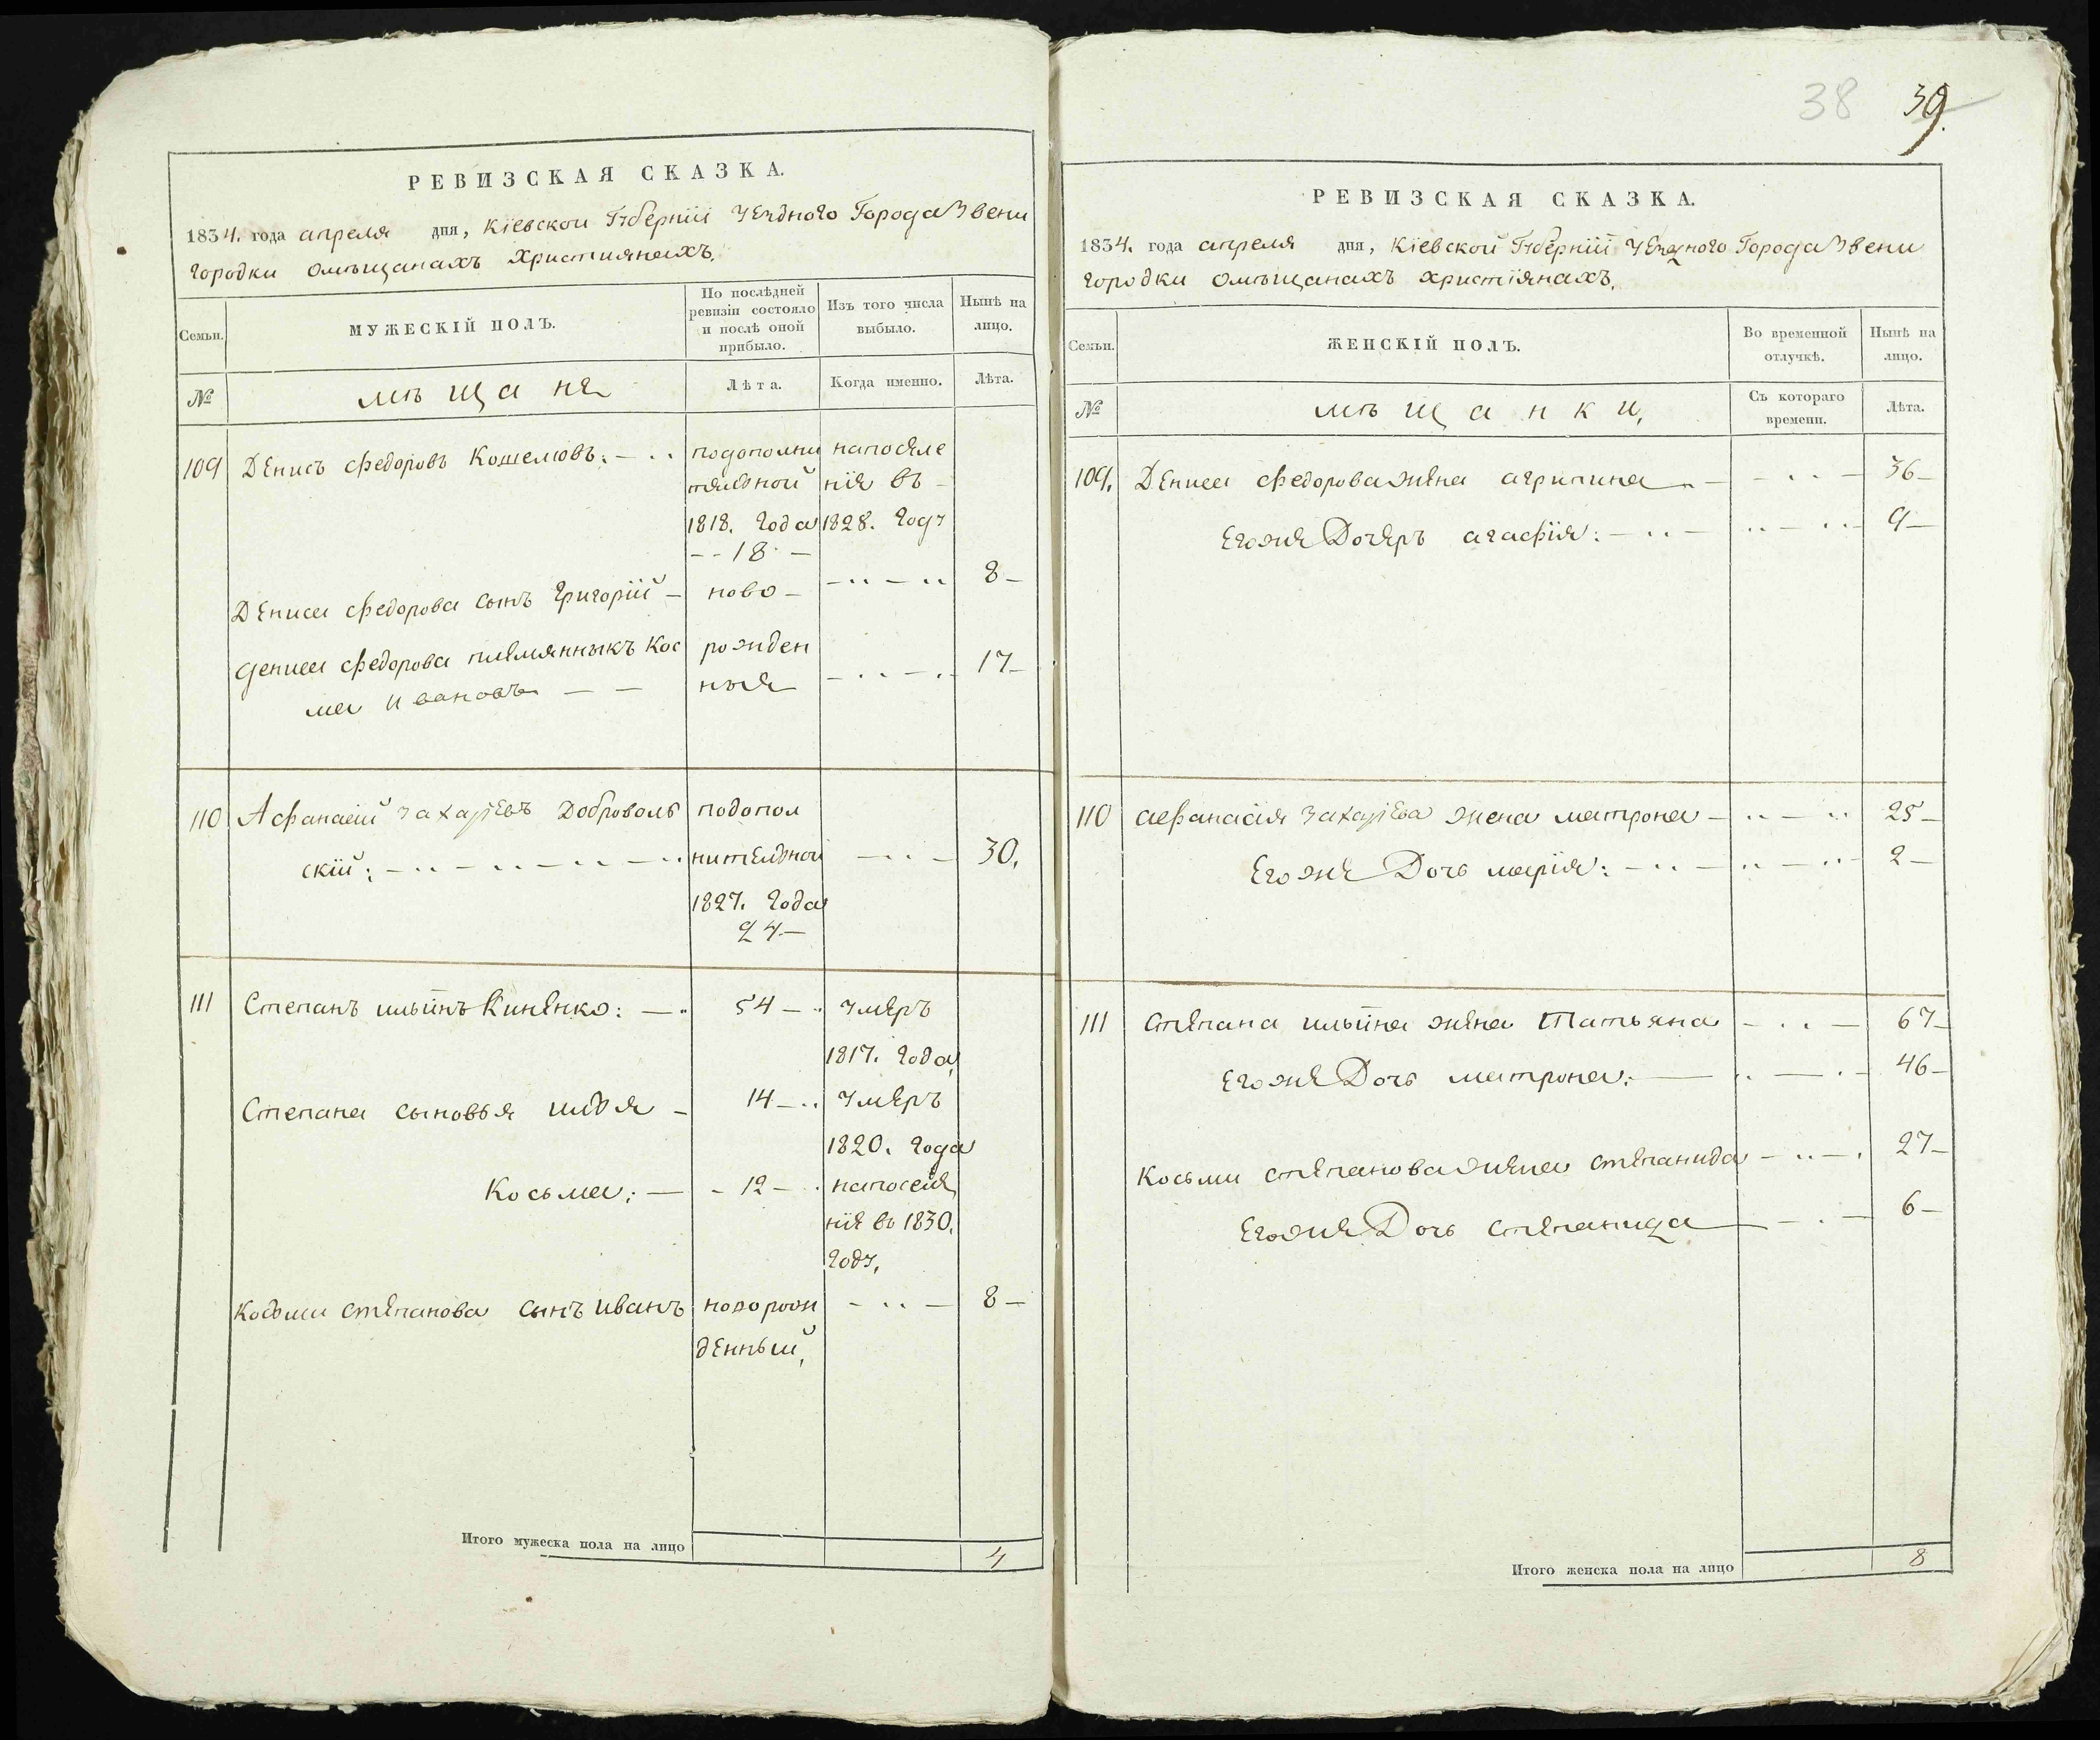 РЕВИЗСКАЯ СКАЗКА.
1834. года апреля дня, Кіевской Губерніи уезднаго Города Звени
городки омѣщанахъ християнахъ.
Семьи.
МУЖЕСКІЙ ПОЛЪ.
По послѣдней
ревизіи состояло
и послѣ оной
прибыло.
Изъ того числа
выбыло.
Нынѣ на
лицо.
№
мѣщане
Лѣта.
Когда именно.
Лѣта.
109 Денисъ Федоровъ Кошеловъ:
подополни
тельной
1818. года
18
напоселе
ніе въ
1828. году
Дениса Федорова сынъ Григорій
ново
8
Дениса Федорова племянныкъ Кос
ма Ивановъ
рожден
ные
17
110 Афанасій Захарьевъ Доброволь
скій:
подопол
нительной
1827. года
24
30.
111 Степанъ ильинъ Киненко:
54
умеръ
1817. года,
Степана сыновья илья
14
умеръ
1820. года
Косьма:
12
напоселе
ніе въ 1830.
году,
Косьми степанова сынъ иванъ
новорож
денный,
8
Итого мужеска пола на лицо
4
38 39
РЕВИЗСКАЯ СКАЗКА.
1834. года апреля дня, Кіевской Губерніи уезднаго Города Звени
городки омѣщанахъ христіянахъ.
Семьи.
ЖЕНСКІЙ ПОЛЪ.
Во временной
отлучкѣ.
Нынѣ на
лицо.
№
мѣщанки,
Съ котораго
времени.
Лѣта.
109. Дениса Федорова жена агрипина 36
Егоже Дочеръ агафія: 9
110 афанасія Захарьева жена матрона 25
Егоже Дочь марія: 2
111 степана ильина жена Татьяна 67
Егоже Дочь матрона: 46
Косьми степанова жена степанида 27
Егоже Дочь степанида 6
Итого женска пола на лицо
8